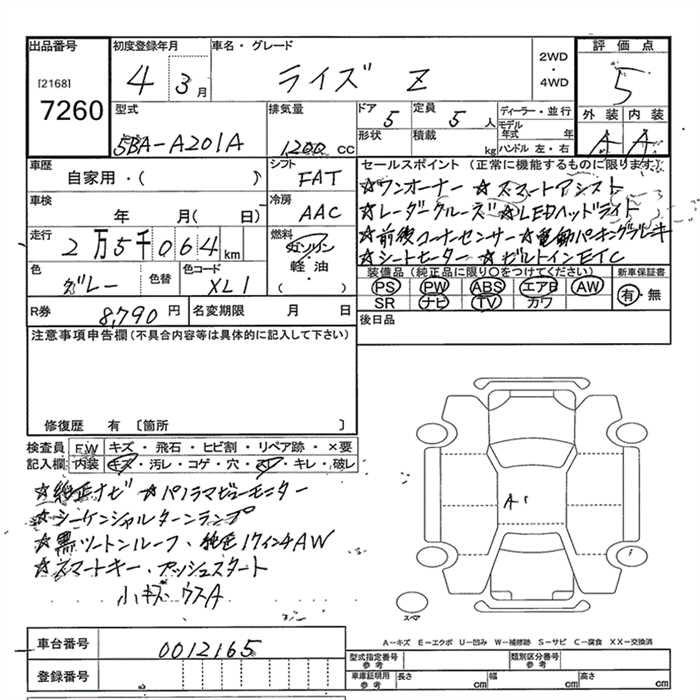 出品番号 初度登録年月 車名・グレード 2WD・4WD 評価点
[2168] 7260 4 3月 ライズ Z 5
型式 排気量 ドア 5 定員 5人 ディーラー・並行 外装 内装
5BA-A201A 1200cc 形状 積載 kg モデル年式 年 ハンドル 左・右 A A
車歴 自家用・( ) シフト FAT セールスポイント(正常に機能するものに限ります。)
車検 年 月( 日) 冷房 AAC ☆ワンオーナー ☆スマートアシスト
☆レーダークルーズ ☆LEDヘッドライト
走行 2万5千064km 燃料 ガソリン・軽油・( ) ☆前後コーナーセンサー ☆電動パーキングブレーキ
☆シートヒーター ☆ビルトインETC
色 グレー 色替 色コード XL1 装備品(純正品に限り○をつけてください) 新車保証書
PS PW ABS エアB AW 有・無
SR ナビ TV カワ
R券 8,790円 名変期限 月 日 後日品
注意事項申告欄(不具合内容等は具体的に記入して下さい)
修復歴 有 [箇所 ]
検査員 FW キズ・飛石・ヒビ割・リペア跡・×要
記入欄 内装 キズ・汚レ・コゲ・穴・スレ・キレ・破レ
☆純正ナビ ☆パノラマビューモニター
☆シーケンシャルターンランプ
☆黒ツートンルーフ、純正17インチAW
☆スマートキー・プッシュスタート
小キズ・ウスA
A1
スペア
A−キズ E−エクボ U−凹み W−補修跡 S−サビ C−腐食 XX−交換済
車台番号 0012165 型式指定番号 参考 類別区分番号 参考
登録番号 車庫証明用 参考 長さ cm 幅 cm 高さ cm